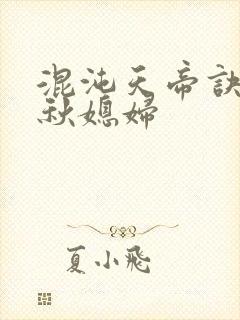 混沌天帝訣
秋媳婦
夏小飛